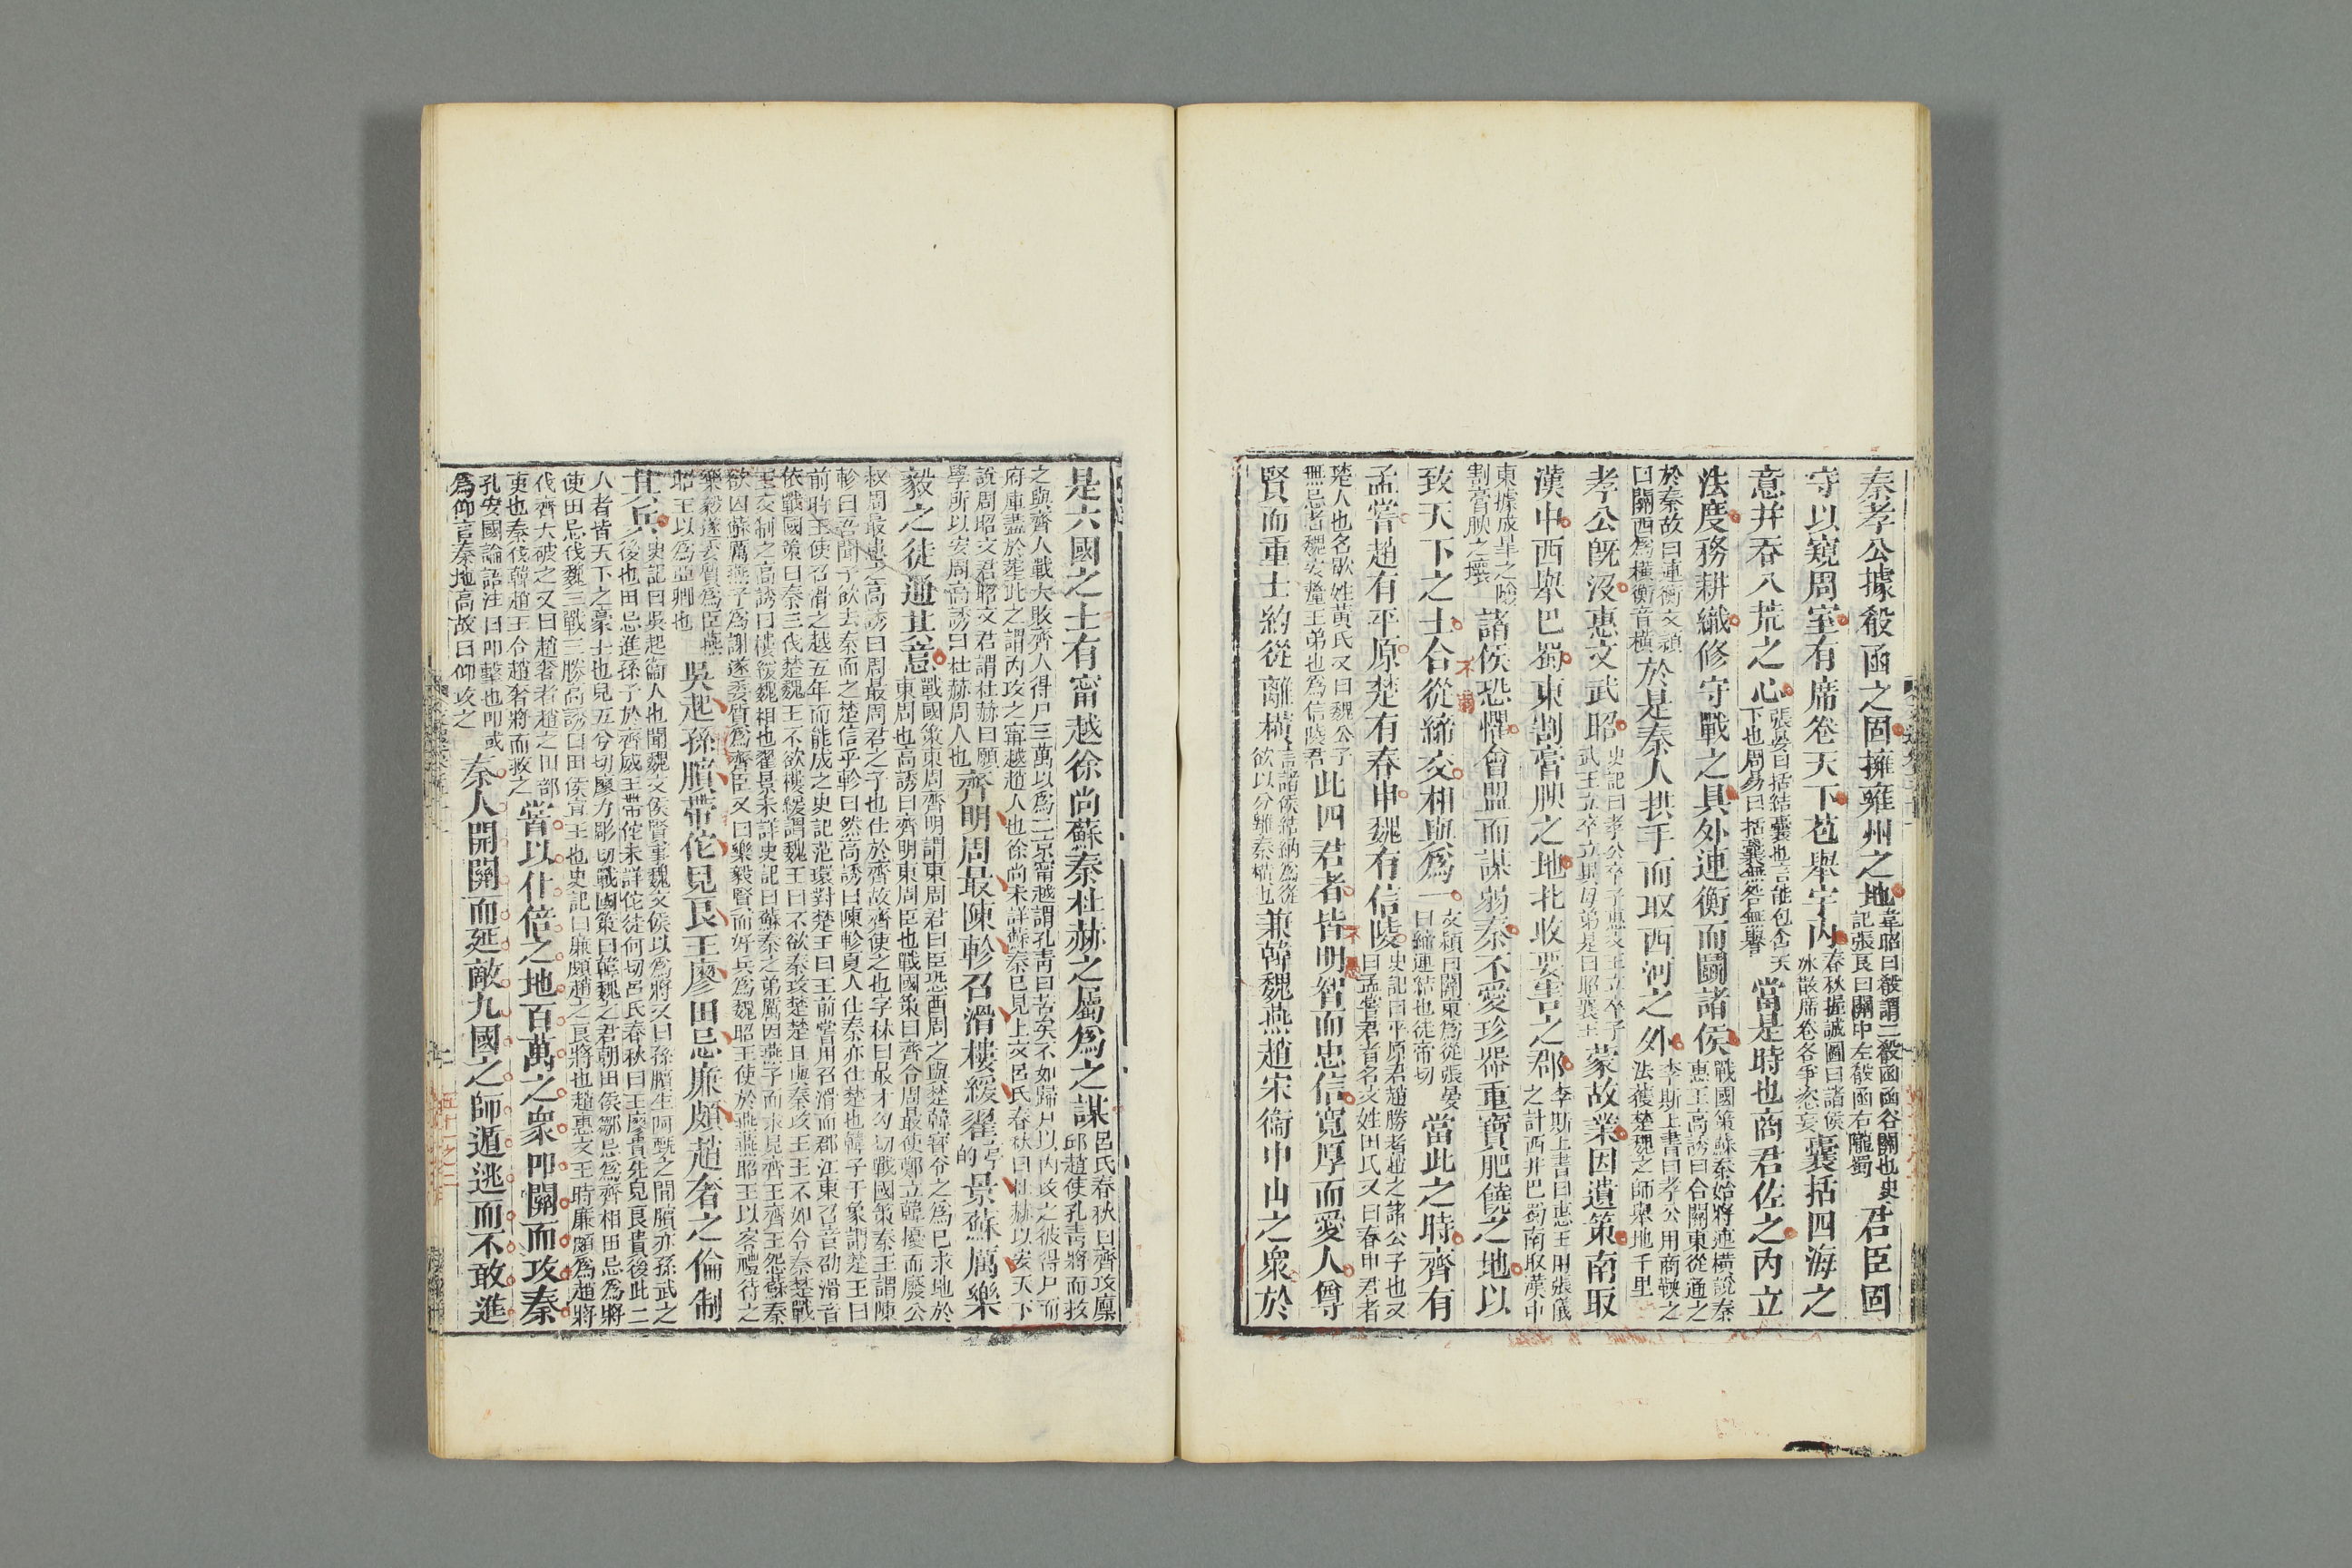 秦孝公據殽函之固擁雍州之地韋昭曰殽謂二殽函函谷關也史記張良曰關中左殽函右隴蜀君臣固
守以窺周室有席卷天下苞舉宇內春秋握誠圖曰諸侯冰散席卷各爭恣妄囊括四海之
意并吞八荒之心張晏曰括結囊也言能包含天下也周易曰括囊無咎無譽當是時也商君佐之內立
法度務耕織修守戰之具外連衡而鬬諸侯戰國策蘇秦始將連橫說秦惠王高誘曰合關東從通之
於秦故曰連衡文穎曰關西為橫衡音橫於是秦人拱手而取西河之外李斯上書曰孝公用商鞅之法獲楚魏之師舉地千里
孝公既沒惠文武昭史記曰孝公卒子惠文王立卒子武王立卒立異母弟是曰昭襄王蒙故業因遺策南取
漢中西舉巴蜀東割膏腴之地北收要害之郡李斯上書曰惠王用張儀之計西并巴蜀南取漢中
東據成皋之險割膏腴之壤諸侯恐懼會盟而謀弱秦不愛珍器重寶肥饒之地以
致天下之士合從締交相與為一文穎曰關東為從張晏曰締連結也徒帝切當此之時齊有
孟嘗趙有平原楚有春申魏有信陵史記曰平原君趙勝者趙之諸公子也又曰孟嘗君者名文姓田氏又曰春申君者
楚人也名歇姓黃氏又曰魏公子無忌者魏安釐王弟也為信陵君此四君者皆明智而忠信寬厚而愛人尊
賢而重士約從離橫言諸侯結納為從欲以分離秦橫也兼韓魏燕趙宋衞中山之衆於
是六國之士有甯越徐尚蘇秦杜赫之屬為之謀呂氏春秋曰齊攻廩邱趙使孔青將而救
之與齊人戰大敗齊人得尸三萬以為二京甯越謂孔青曰苦矣不如歸尸以內攻之彼得尸而
府庫盡於葬此之謂內攻之甯越趙人也徐尚未詳蘇秦已見上文呂氏春秋曰杜赫以安天下
說周昭文君昭文君謂杜赫曰願學所以安周高誘曰杜赫周人也齊明周最陳軫召滑樓緩翟景蘇厲樂
毅之徒通其意戰國策東周齊明謂東周君曰臣恐西周之與楚韓寶令之為已求地於東周也高誘曰齊明東周臣也戰國策曰齊令周最使鄭立韓擾而廢公
叔周最患之高誘曰周最周君之子也仕於齊故齊使之也字林曰最才勾切戰國策秦王謂陳
軫曰吾聞子欲去秦而之楚信乎軫曰然高誘曰陳軫夏人仕秦亦仕楚也韓子干象謂楚王曰
前時王使召滑之越五年而能成之史記范環對楚王曰王前嘗用召滑而郡江東召音劭滑音
依戰國策曰秦三伐楚魏王不欲樓緩謂魏王曰不欲秦攻楚楚且與秦攻王王不如令秦楚戰
王交制之高誘曰樓緩魏相也翟景未詳史記曰蘇秦之弟厲因燕子而求見齊王齊王怨蘇秦
欲囚蘇厲燕子為謝遂委質為齊臣又曰樂毅賢而好兵為魏昭王使於燕燕昭王以客禮待之
樂毅遂委質為臣燕昭王以為亞卿也吳起孫臏帶佗兒良王廖田忌廉頗趙奢之倫制
其兵史記曰吳起衞人也聞魏文侯賢事魏文侯以為將又曰孫臏生阿甄之間臏亦孫武之後也田忌進孫子於齊威王帶佗未詳佗徒何切呂氏春秋曰王廖貴先兒良貴後此二
人者皆天下之豪士也兒五兮切廖力彫切戰國策曰韓魏之君朝田侯鄒忌為齊相田忌為將
使田忌伐魏三戰三勝高誘曰田侯宣王也史記曰廉頗趙之良將也趙惠文王時廉頗為趙將
伐齊大破之又曰趙奢者趙之田部吏也秦伐韓趙王令趙奢將而救之嘗以什倍之地百萬之衆叩關而攻秦
孔安國論語注曰叩擊也叩或為仰言秦地高故曰仰攻之秦人開關而延敵九國之師遁逃而不敢進